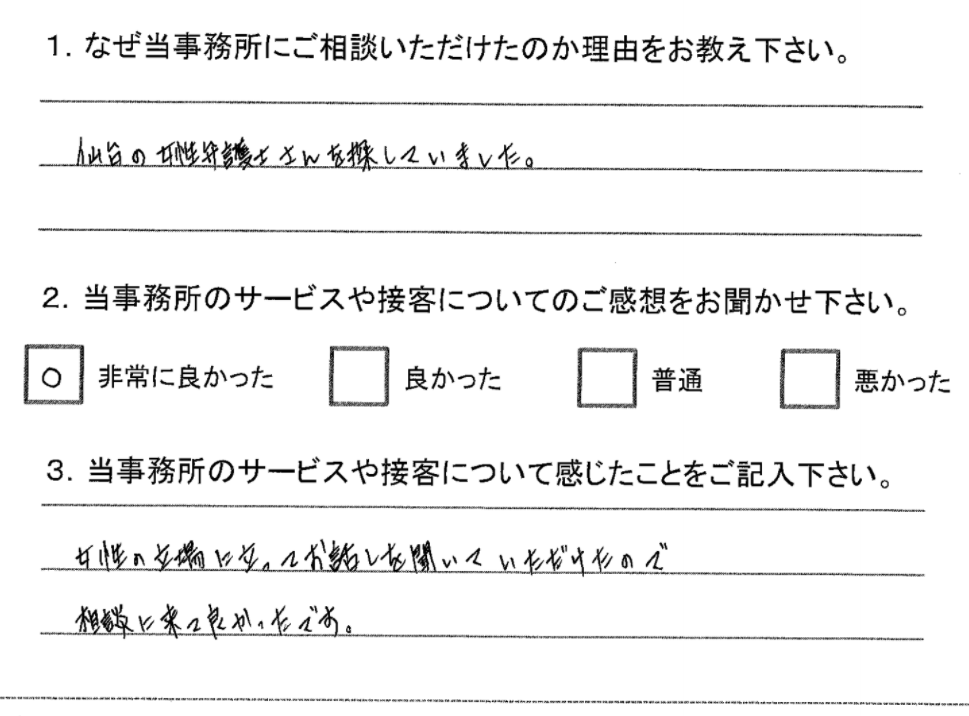 1. なぜ当事務所にご相談いただけたのか理由をお教え下さい。
仙台の女性弁護士さんを探していました。
2. 当事務所のサービスや接客についてのご感想をお聞かせ下さい。
○ 非常に良かった 良かった 普通 悪かった
3. 当事務所のサービスや接客について感じたことをご記入下さい。
女性の立場に立ってお話しを聞いていただけたので
相談に来て良かったです。